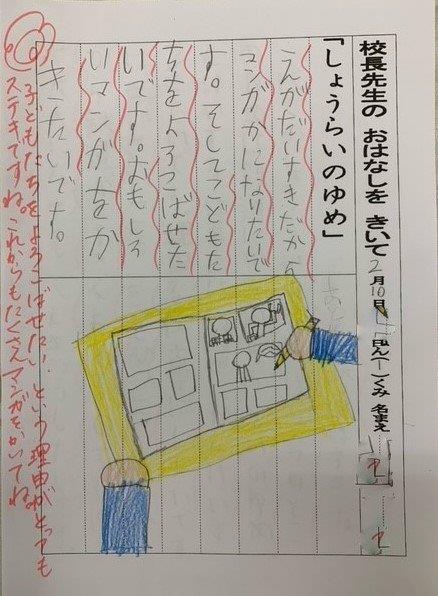 校長先生の おはなしを きいて 2月10日 1ねん(一)くみ 名まえ
「しょうらいのゆめ」
えがだいすきだから
マンガかになりたいで
す。そしてこどもた
ちをよろこばせた
いです。おもしろ
いマンガをか
きたいです。
子どもたちをよろこばせたい…という理由がとっても
ステキですね。これからもたくさんマンガをかいてね。